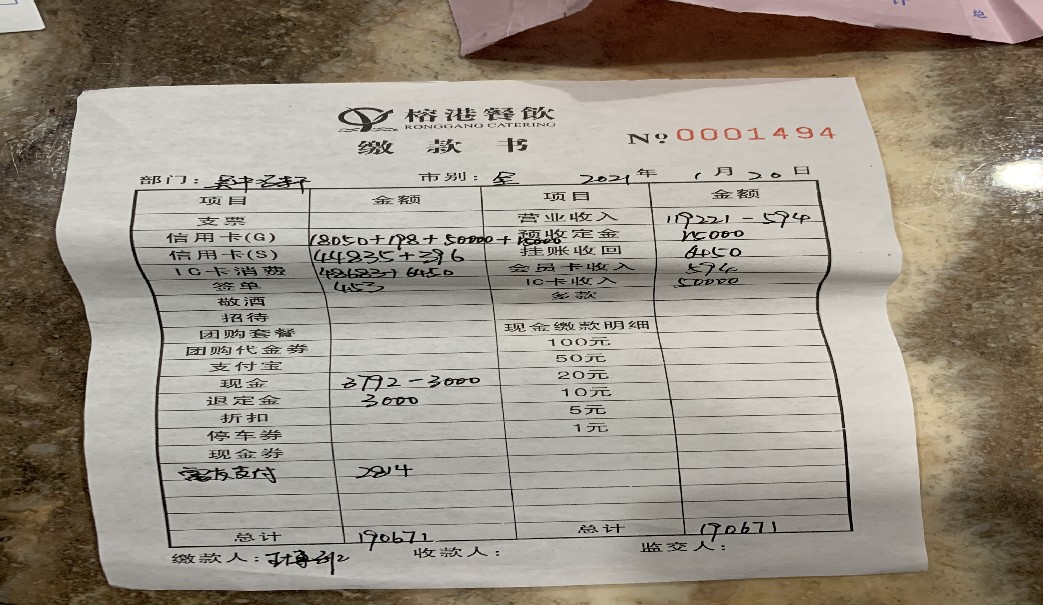 榕港餐飲
RONGGANG CATERING
缴款书
№ 0001494
部门: 吴中 市别: 全 2021年 1月20日
项目 金额 项目 金额
支票 营业收入 119221-594
信用卡(G) 18050+198+50000+15000 预收定金 15000
信用卡(S) 44835+396 挂账收回 6450
IC卡消费 48683+6450 会员卡收入 594
签单 453 IC卡收入 50000
敬酒 多款
招待
团购套餐 现金缴款明细
团购代金券 100元
支付宝 50元
现金 3792-3000 20元
退定金 3000 10元
折扣 5元
停车券 1元
现金券
富友支付 2814
总计 190671 总计 190671
缴款人: 收款人: 监交人: